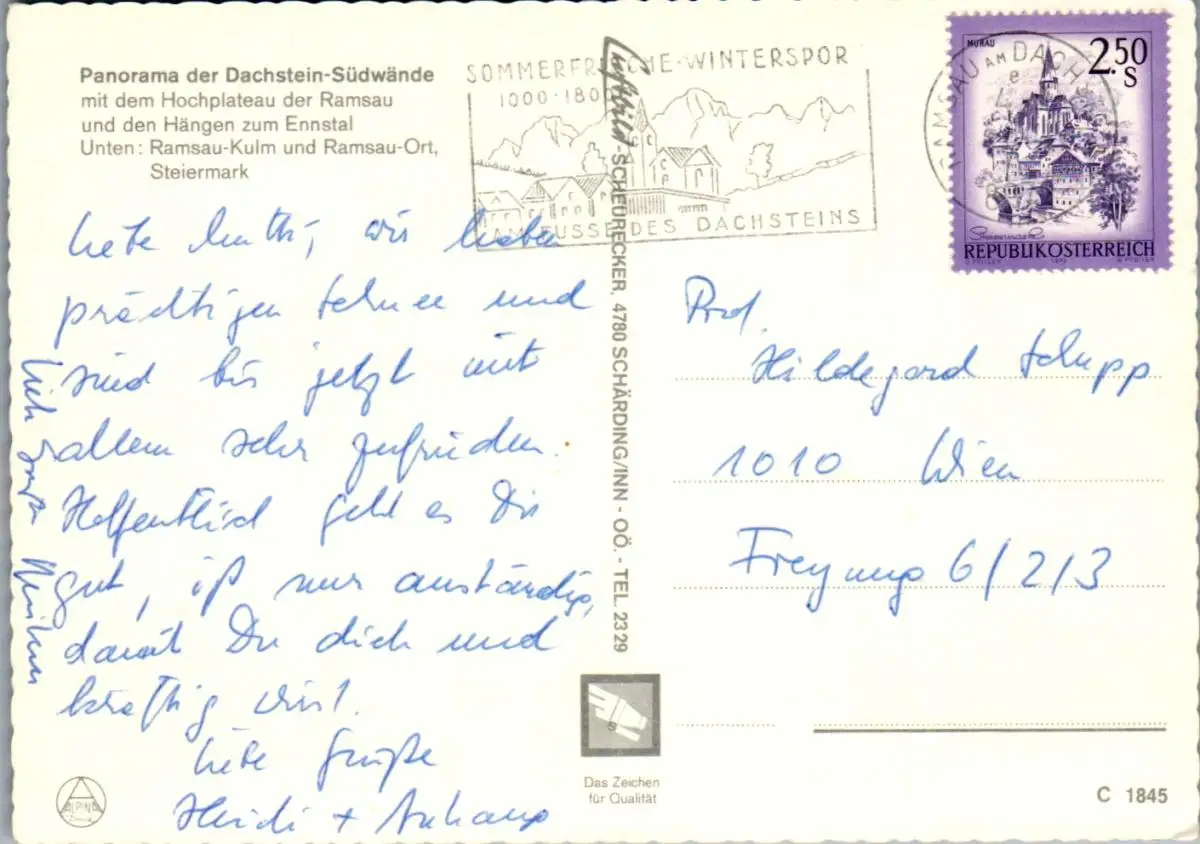 Panorama der Dachstein-Südwände
mit dem Hochplateau der Ramsau
und den Hängen zum Ennstal
Unten: Ramsau-Kulm und Ramsau-Ort,
Steiermark
SOMMERFRISCHE-WINTERSPOR
1000-180
AM FUSSE DES DACHSTEINS
RAMSAU AM DACH
MURAU
2.50
S
REPUBLIK ÖSTERREICH
Liebe Mutti, wir haben
prächtigen Schnee und
sind bis jetzt mit
allem sehr zufrieden.
Hoffentlich geht es Dir
gut, iß nur anständig,
damit Du dick und
kräftig wirst.
Liebe Grüße
Heidi + Anhang
Luftbild-SCHEURECKER, 4780 SCHÄRDING/INN - OÖ. - TEL. 2329
Prof.
Hildegard Schupp
1010 Wien
Freyung 6/2/3
S
Das Zeichen
für Qualität
ALPINA
C 1845